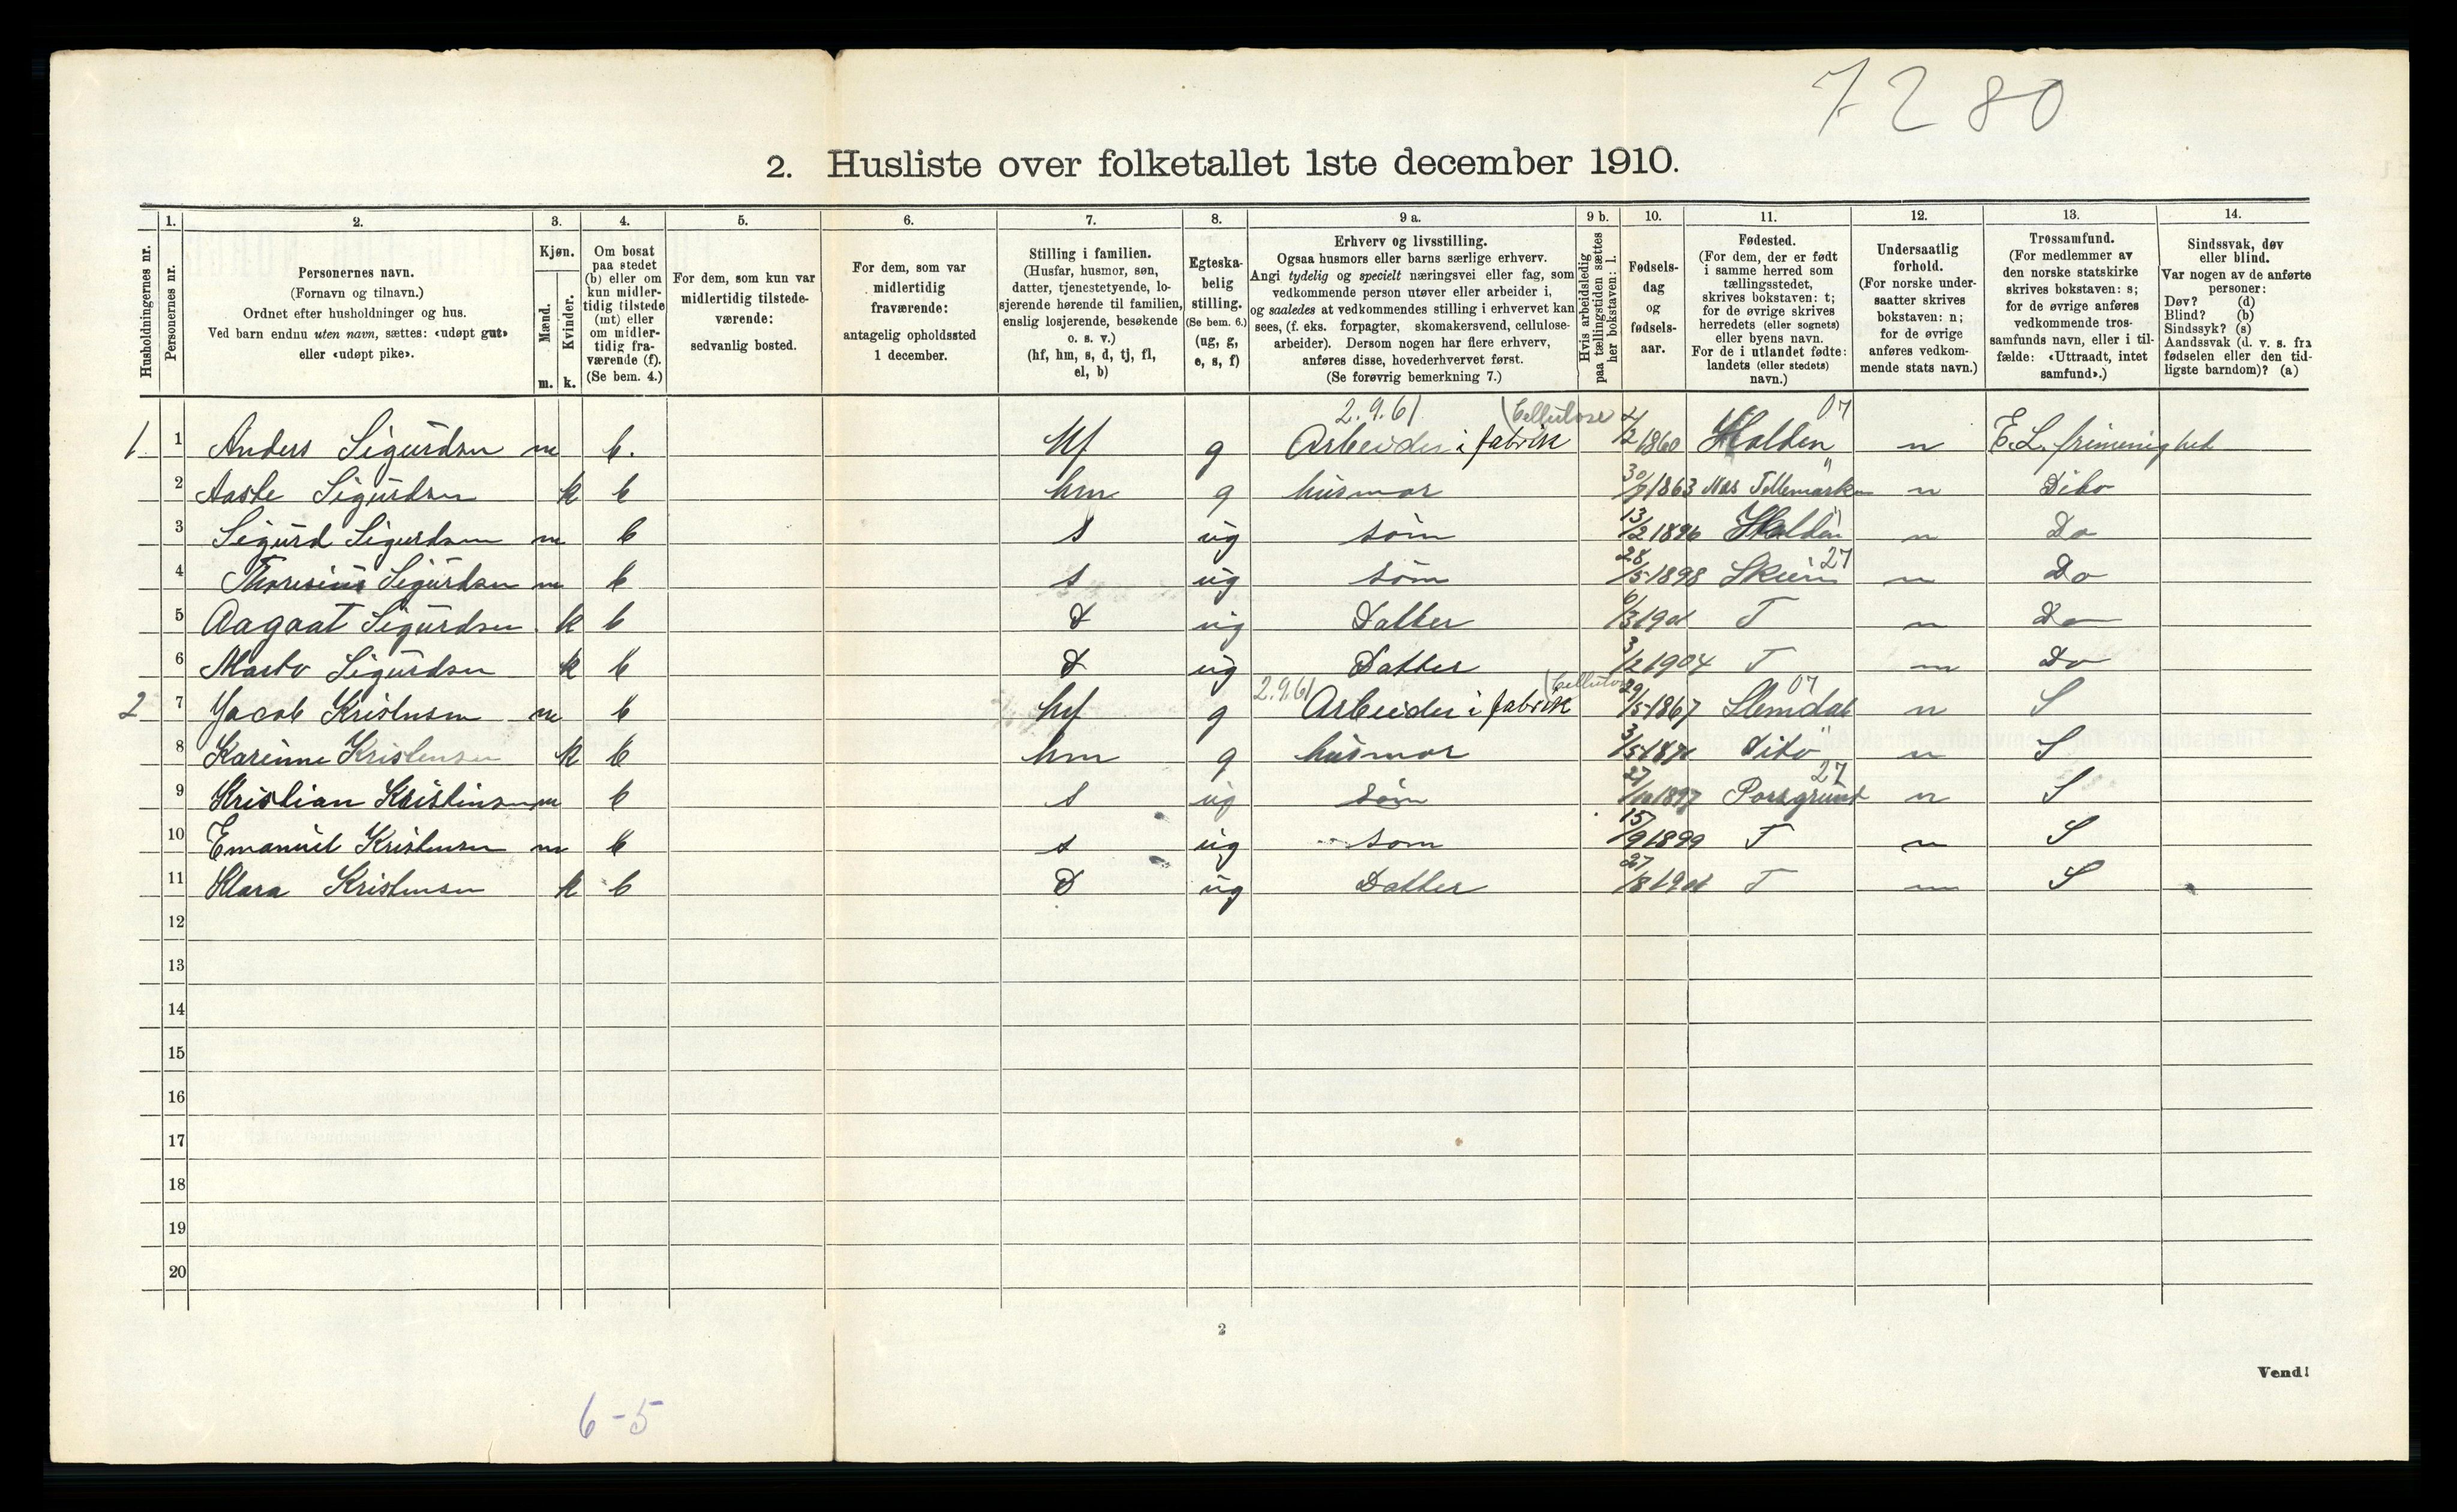 7280
2. Husliste over folketallet 1ste december 1910.
Husholdningernes nr.
1.
Personernes nr.
2.
Personernes navn.
(Fornavn og tilnavn.)
Ordnet efter husholdninger og hus.
Ved barn endnu uten navn, sættes: «udøpt gut»
eller «udøpt pike».
3.
Kjøn.
Mænd.
Kvinder.
m. k.
4.
Om bosat
paa stedet
(b) eller om
kun midler-
tidig tilstede
(mt) eller
om midler-
tidig fra-
værende (f).
(Se bem. 4.)
5.
For dem, som kun var
midlertidig tilstede-
værende:
sedvanlig bosted.
6.
For dem, som var
midlertidig
fraværende:
antagelig opholdssted
1 december.
7.
Stilling i familien.
(Husfar, husmor, søn,
datter, tjenestetyende, lo-
sjerende hørende til familien,
enslig losjerende, besøkende
o. s. v.)
(hf, hm, s, d, tj, fl,
el, b)
8.
Egteska-
belig
stilling.
(Se bem. 6.)
(ug, g,
e, s, f)
9 a.
Erhverv og livsstilling.
Ogsaa husmors eller barns særlige erhverv.
Angi tydelig og specielt næringsvei eller fag, som
vedkommende person utøver eller arbeider i,
og saaledes at vedkommendes stilling i erhvervet kan
sees, (f. eks. forpagter, skomakersvend, cellulose-
arbeider). Dersom nogen har flere erhverv,
anføres disse, hovederhvervet først.
(Se forøvrig bemerkning 7.)
9 b.
Hvis arbeidsledig
paa tællingstiden sættes
her bokstaven: l.
10.
Fødsels-
dag
og
fødsels-
aar.
11.
Fødested.
(For dem, der er født
i samme herred som
tællingsstedet,
skrives bokstaven: t;
for de øvrige skrives
herredets (eller sognets)
eller byens navn.
For de i utlandet fødte:
landets (eller stedets)
navn.)
12.
Undersaatlig
forhold.
(For norske under-
saatter skrives
bokstaven: n;
for de øvrige
anføres vedkom-
mende stats navn.)
13.
Trossamfund.
(For medlemmer av
den norske statskirke
skrives bokstaven: s;
for de øvrige anføres
vedkommende tros-
samfunds navn, eller i til-
fælde: «Uttraadt, intet
samfund».)
14.
Sindssvak, døv
eller blind.
Var nogen av de anførte
personer:
Døv? (d)
Blind? (b)
Sindssyk? (s)
Aandssvak (d. v. s. fra
fødselen eller den tid-
ligste barndom)? (a)
2.9.61 (Cellulose 07
1. 1 Anders Sigurdsen m b. Hf g Arbeider i fabrik 1860 Holden n E.L. frimenighed
2 Aaste Sigurdsen k b hm g husmor 30/ 1863 Nes Tellemarken n Dito
3 Sigurd Sigurdsen m b s ug søn 13/2 1896 Holden n Do
27
4 Sigurdsen m b s ug søn 28/5 1898 Skien n Do
5 Aagaat Sigurdsen k b D ug Datter 6/3 T n Do
6 Sigurdsen k b D ug Datter 3/2 1904 T n Do
2.9.61 (Cellulose 07
2 7 Jacob Kristensen m b hf g Arbeider i fabrik 29/5 1867 Slemdal n S
8 Karinne Kristensen k b hm g husmor 3/5 Dito n S
27
9 Kristian Kristensen m b s ug søn 27/10 1897 Porsgrund n S
10 Emanuel Kristensen m b s ug søn 15/9 1899 T n S
11 Klara Kristensen k b D ug Datter 27/8 T n S
12
13
14
15
16
17
18
19
20
2
Vend!
6-5